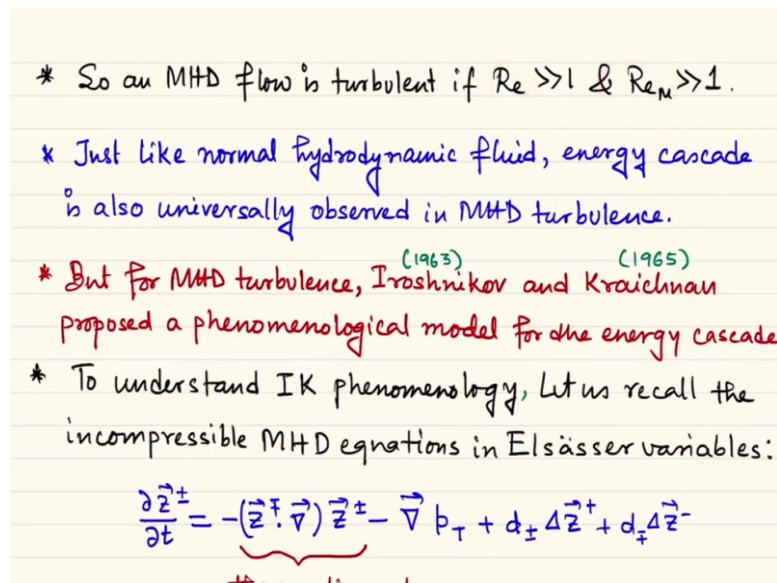 * So an MHD flow is turbulent if Re >>1 & Re_M >>1.
* Just like normal hydrodynamic fluid, energy cascade
is also universally observed in MHD turbulence.
(1963) (1965)
* But for MHD turbulence, Iroshnikov and Kraichnan
proposed a phenomenological model for the energy cascade
* To understand IK phenomenology, Let us recall the
incompressible MHD equations in Elsässer variables:
∂z⃗^±/∂t = -(z⃗^∓·∇⃗) z⃗^± - ∇⃗ p_T + d_± Δz⃗^+ + d_∓ Δz⃗^-